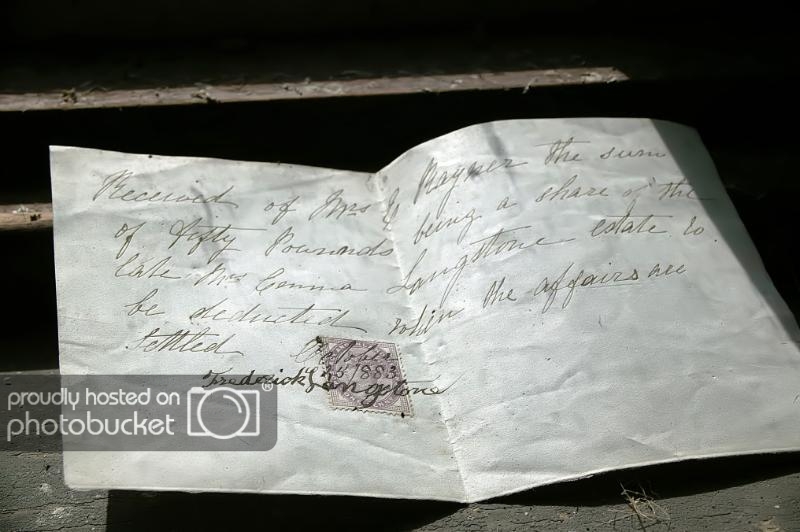 Received of Mrs G Rayner the sum
of fifty Pounds being a share of the
late Mrs Emma Langstone estate to
be deducted when the affairs are
settled October
25 1883
Frederick Langstone
proudly hosted on
photobucket